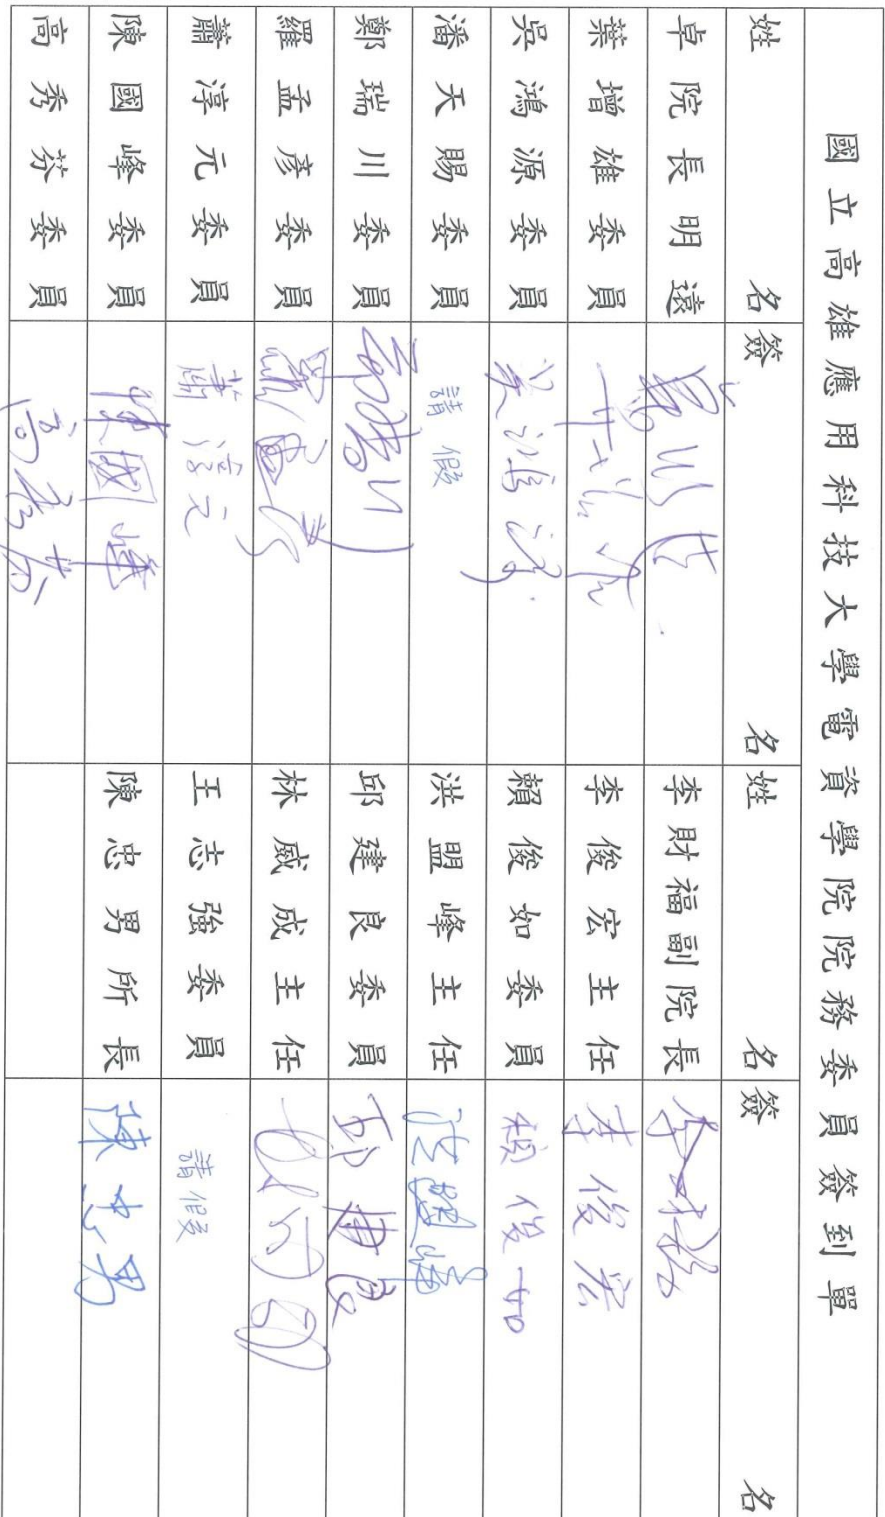 國立高雄應用科技大學電資學院院務委員簽到單
姓名 簽名 姓名 簽名
卓院長明遠 李財福副院長
葉增雄委員 李俊宏主任 李俊宏
吳鴻源委員 賴俊如委員 賴俊如
潘天賜委員 請假 洪盟峰主任
鄭瑞川委員 邱建良委員
羅孟彥委員 林威成主任
蕭淳元委員 蕭淳元 王志強委員 請假
陳國峰委員 陳國峰 陳忠男所長 陳忠男
高秀芬委員 高秀芬